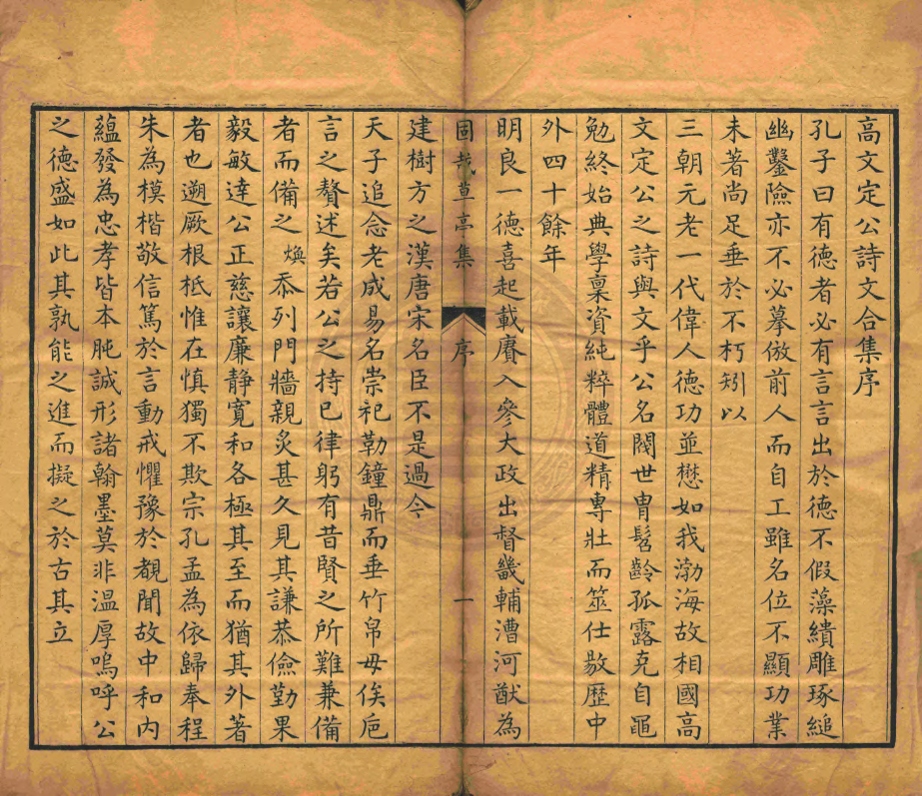 高文定公詩文合集序
孔子曰有德者必有言言出於德不假藻繢雕琢縋
幽鑿險亦不必摹倣前人而自工雖名位不顯功業
未著尚足垂於不朽矧以
三朝元老一代偉人德功並懋如我渤海故相國高
文定公之詩與文乎公名閥世冑髫齡孤露克自黽
勉終始典學稟資純粹體道精專壯而筮仕敭歷中
外四十餘年
明良一德喜起載賡入參大政出督畿輔漕河猷為
固哉草亭集 序 一
建樹方之漢唐宋名臣不是過今
天子追念老成易名崇祀勒鐘鼎而垂竹帛毋俟巵
言之贅述矣若公之持己律躬有昔賢之所難兼備
者而備之煥忝列門牆親炙甚久見其謙恭儉勤果
毅敏達公正慈讓廉静寬和各極其至而猶其外著
者也遡厥根柢惟在慎獨不欺宗孔孟為依歸奉程
朱為模楷敬信篤於言動戒懼豫於覩聞故中和内
藴發為忠孝皆本肫誠形諸翰墨莫非温厚嗚呼公
之德盛如此其孰能之進而擬之於古其立